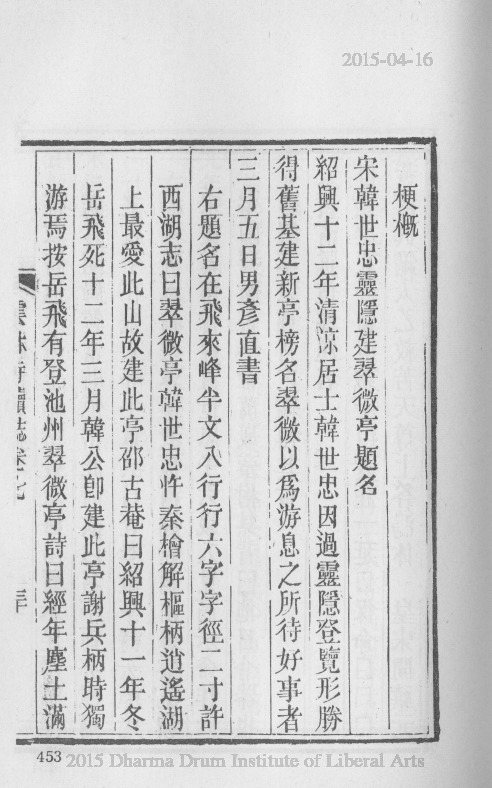 2015-04-16
梗概
宋韓世忠靈隱建翠微亭題名
紹興十二年清涼居士韓世忠因過靈隱登覽形勝
得舊基建新亭榜名翠微以爲游息之所待好事者
三月五日男彥直書
右題名在飛來峰半文八行行六字字徑二寸許
西湖志曰翠微亭韓世忠忤秦檜解樞柄逍遙湖
上最愛此山故建此亭邵古菴曰紹興十一年冬
岳飛死十二年三月韓公卽建此亭謝兵柄時獨
游焉按岳飛有登池州翠微亭詩曰經年塵土滿
雲林寺續誌卷七
三十
453 2015 Dharma Drum Institute of Liberal Arts